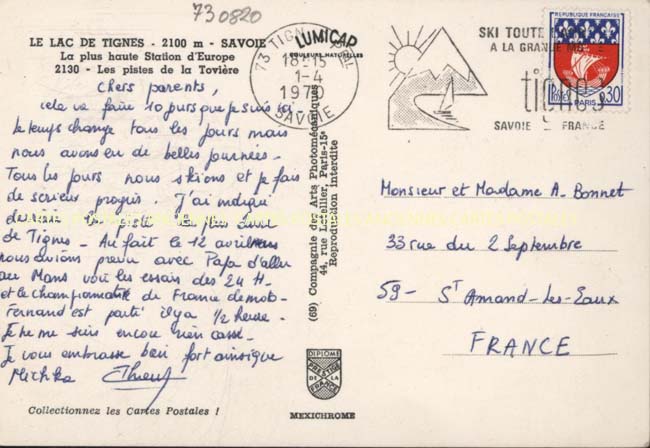 730820
LE LAC DE TIGNES - 2100 m - SAVOIE
La plus haute Station d'Europe
2130 - Les pistes de la Tovière
LUMICAP
COULEURS NATURELLES
73 TIGNES
18H15
1-4
1970
SAVOIE
SKI TOUTE
A LA GRANDE
tignes
SAVOIE FRANCE
RÉPUBLIQUE FRANÇAISE
POSTES
0,30
PARIS
Chers parents,
cela va faire 10 jours que je suis ici.
le temps change tous les jours mais
nous avons eu de belles journées.
Tous les jours nous skions et je fais
de sérieux progrès. J'ai indiqué
de Tignes. Au fait le 12 avril
nous avions prévu avec Papa d'aller
au Mans voir les essais des 24 H.
et le championnat de France de moto.
Fernand est parti il y a 1/2 heure.
Je ne me suis encore rien cassé.
Je vous embrasse bien fort ainsi que
Michka
Monsieur et Madame A. Bonnet
33 rue du 2 Septembre
59 - ST Amand-les-Eaux
FRANCE
(69) Compagnie des Arts Photomécaniques
44, rue Letellier, Paris-15e
Reproduction interdite
DIPLOME
PRESTIGE
DE LA
FRANCE
MEXICHROME
Collectionnez les Cartes Postales !